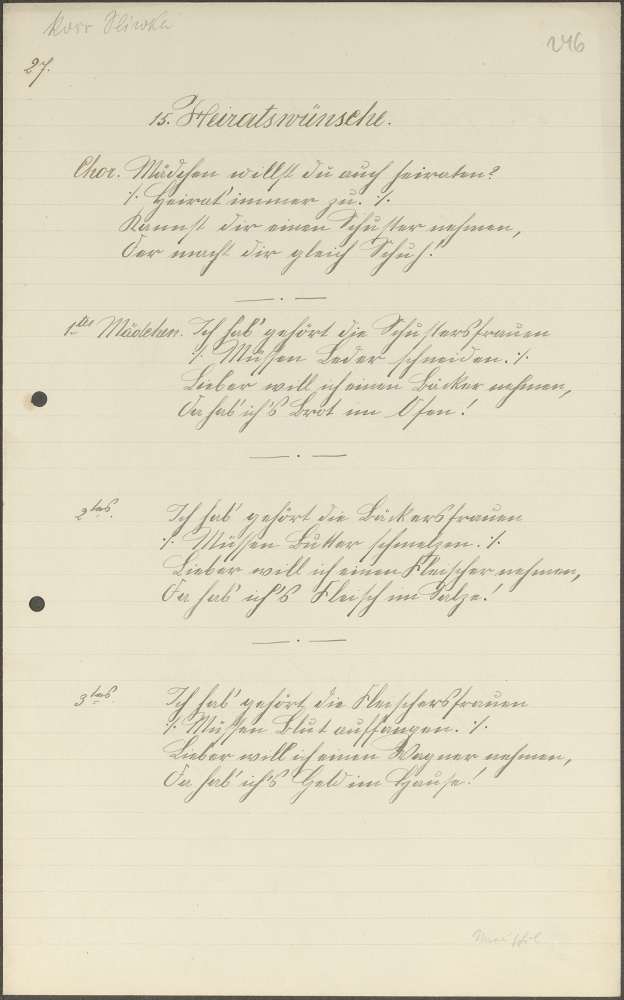 Korr Sliwka
246
27.
15. Heiratswünsche.
Chor. Mädchen willst du auch heiraten?
⁒ Heirat' immer zu. ⁒
Kannst dir einen Schuster nehmen,
Der macht dir gleich Schuh!
1tes Mädchen. Ich hab' gehört die Schustersfrauen
⁒ Müssen Leder schneiden. ⁒
Lieber will ich einen Bäcker nehmen,
Da hab' ich's Brot im Ofen!
2tes. Ich hab' gehört die Bäckersfrauen
⁒ Müssen Butter schmelzen. ⁒
Lieber will ich einen Fleischer nehmen,
Da hab' ich's Fleisch im Salze!
3tes. Ich hab' gehört die Fleischersfrauen
⁒ Müssen Blut auffangen. ⁒
Lieber will ich einen Wagner nehmen,
Da hab' ich's Geld im Hause!